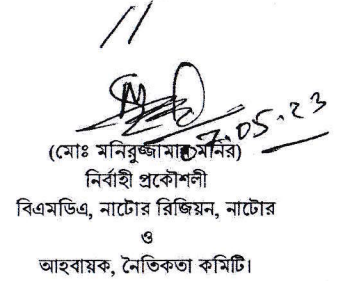 (মোঃ মনিরুজ্জামান মনির)
নির্বাহী প্রকৌশলী
বিএমডিএ, নাটোর রিজিয়ন, নাটোর
ও
আহবায়ক, নৈতিকতা কমিটি।